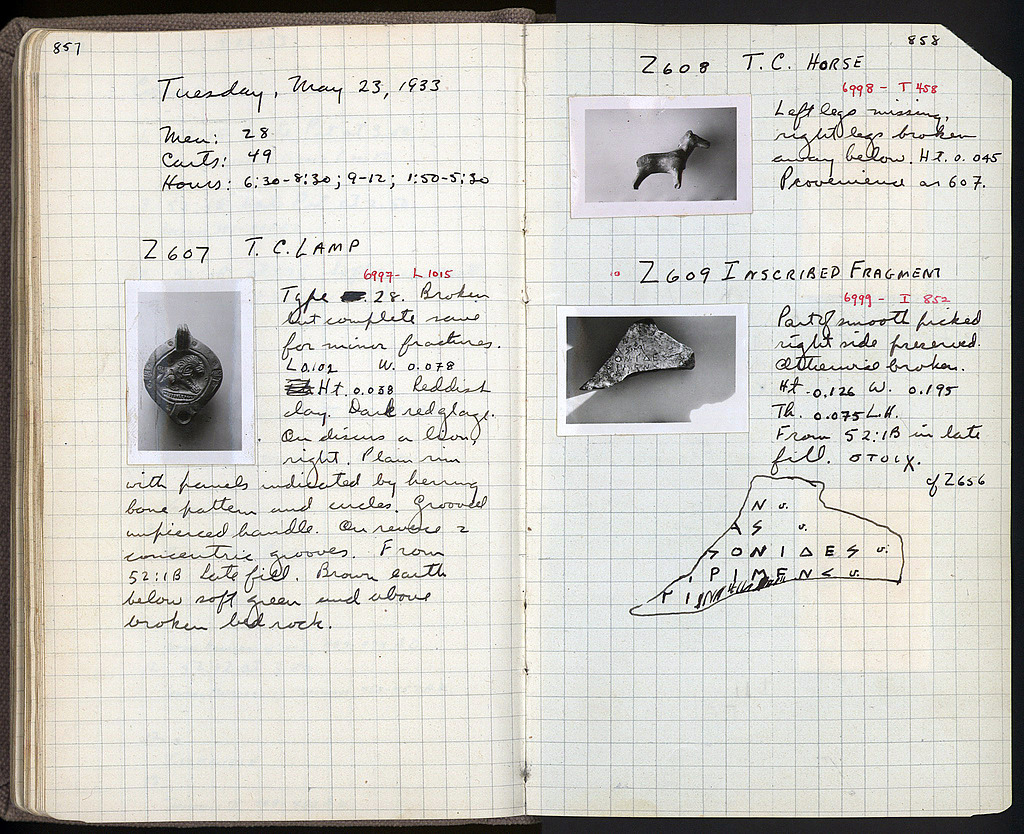 857
Tuesday, May 23, 1933
Men: 28
Carts: 49
Hours: 6:30-8:30; 9-12; 1:50-5:30
Z 607 T. C. LAMP
6997- L 1015
Type 28. Broken
but complete save
for minor fractures.
L 0.102 W. 0.078
Ht. 0.038 Reddish
clay. Dark red glaze.
On discus a lion,
right. Plain rim
with panels indicated by herring
bone pattern and circles. Grooved
unpierced handle. On reverse 2
concentric grooves. From
52:1B late fill. Brown earth
below soft green and above
broken bed rock.
858
Z608 T. C. HORSE
6998 - T 458
Left legs missing,
right legs broken
away below. Ht. 0.045
Provenience as 607.
Z 609 INSCRIBED FRAGMENT
6999 - I 852
Part of smooth picked
right side preserved.
Otherwise broken.
Ht. 0.126 W. 0.195
Th. 0.075 L.H.
From 52:1B in late
fill. ΣΤΟΙΧ.
cf Z656
N v.
A S v.
S O N I Δ E S v.
I P I M E N v.
T I